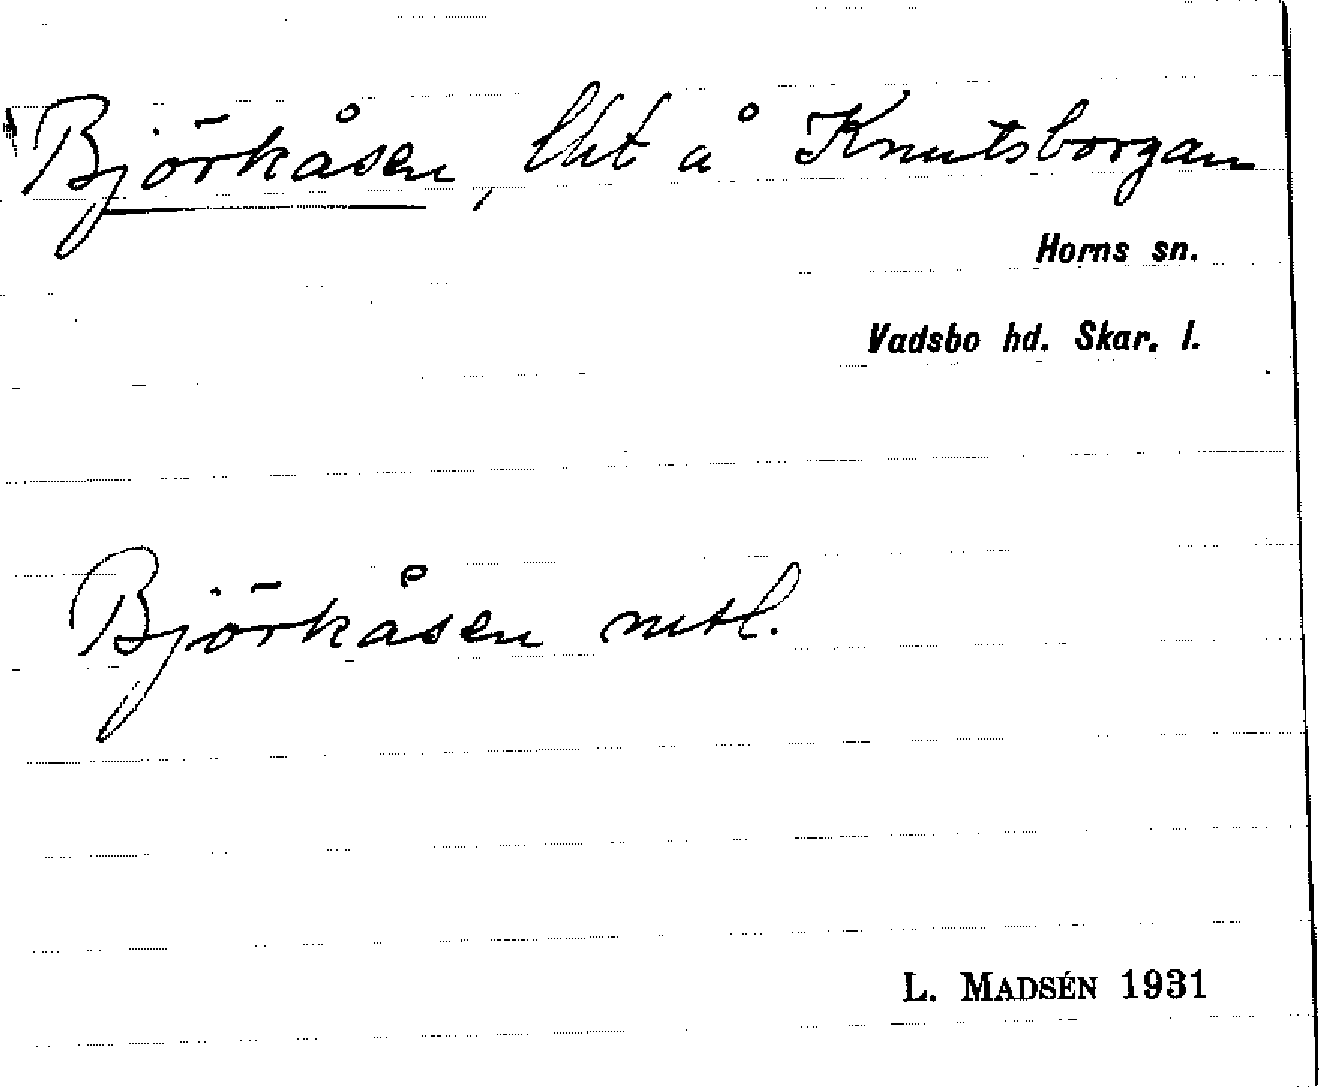 Björkåsen, lht å Knutsborgan
Horns sn.
Vadsbo hd. Skar. l.
Björkåsen mtl.
L. MADSÉN 1931